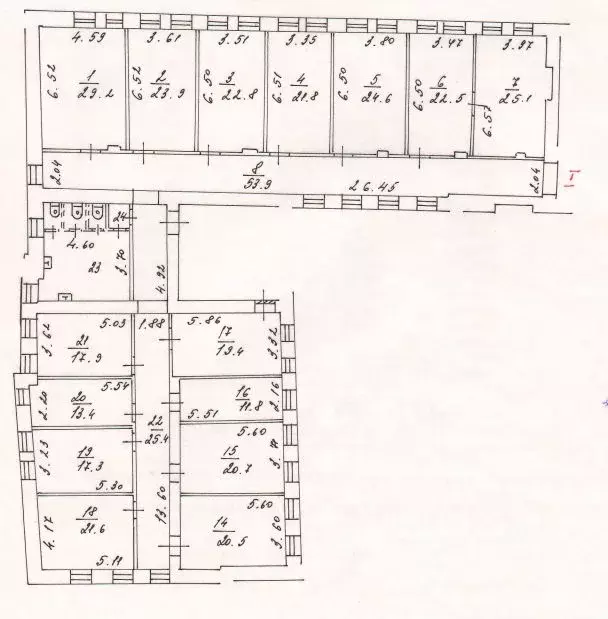 4.59
3.61
3.51
3.35
3.80
3.47
3.97
6.52
1
29.2
6.52
2
23.9
6.50
3
22.8
6.51
4
21.8
6.50
5
24.6
6.50
6
22.5
6.57
7
25.1
2.04
8
53.9
26.45
2.04
I
24
4.60
23
3.70
4.92
5.03
1.88
5.86
3.62
21
17.9
17
19.4
3.32
5.54
2.20
20
13.4
22
25.4
16
11.8
2.16
5.51
5.60
3.23
19
17.3
15
20.7
3.71
5.30
13.60
5.60
4.17
18
21.6
14
20.5
3.60
5.11